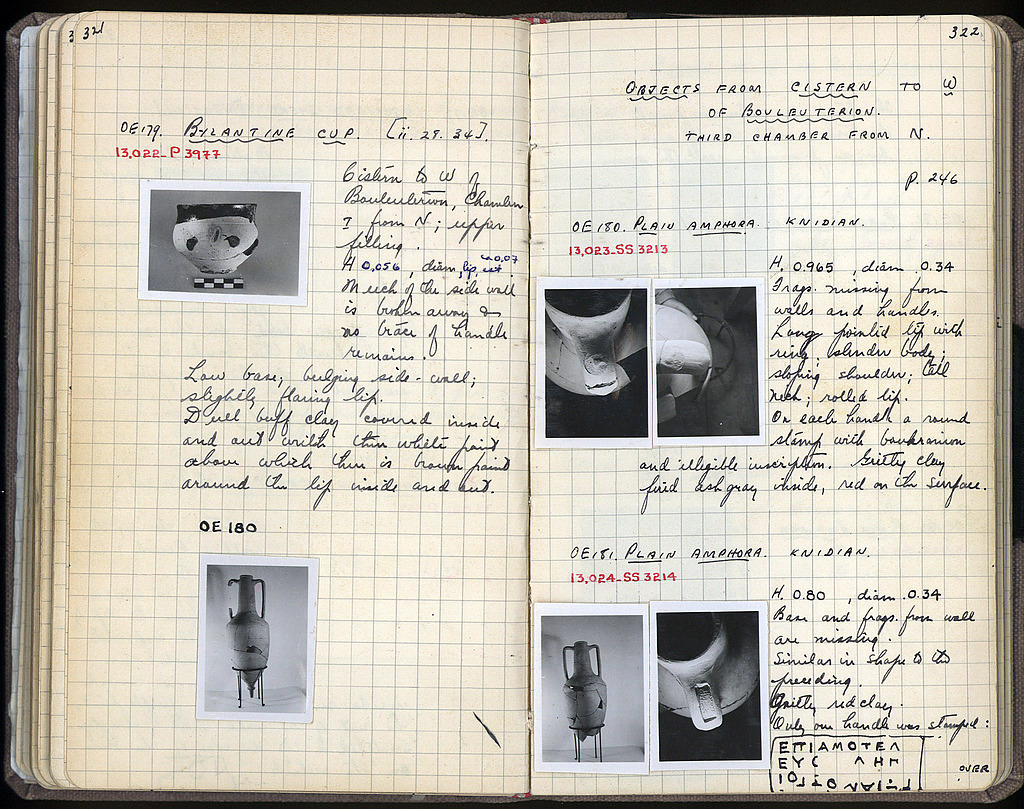 321
OE179. BYZANTINE CUP. [ii. 29. 34].
13,022-P 3977
Cistern to W of
Bouleuterion, Chamber
I from N; upper
filling.
H 0.056, diam, lip, est ca 0.07
Much of the side wall
is broken away &
no trace of handle
remains.
Low base; bulging side-wall;
slightly flaring lip.
Dull buff clay covered inside
and out with thin white paint
above which there is brown paint
around the lip inside and out.
OE 180
322
OBJECTS FROM CISTERN TO W
OF BOULEUTERION.
THIRD CHAMBER FROM N.
P. 246
OE180. PLAIN AMPHORA. KNIDIAN.
13,023-SS 3213
H. 0.965, diam. 0.34
Frags. missing from
walls and handles.
Long pointed tip with
ring; slender body;
sloping shoulder; tall
neck; rolled lip.
On each handle a round
stamp with boukranion
and illegible inscription. Gritty clay
fired ash gray inside, red on the surface.
OE181. PLAIN AMPHORA. KNIDIAN.
13,024-SS 3214
H. 0.80, diam. 0.34
Base and frags. from wall
are missing.
Similar in shape to the
preceding.
Gritty red clay.
Only one handle was stamped:
ΕΠΙΑΜΟΤΕΛ
ΕΥC ΛΗΗ
OVER